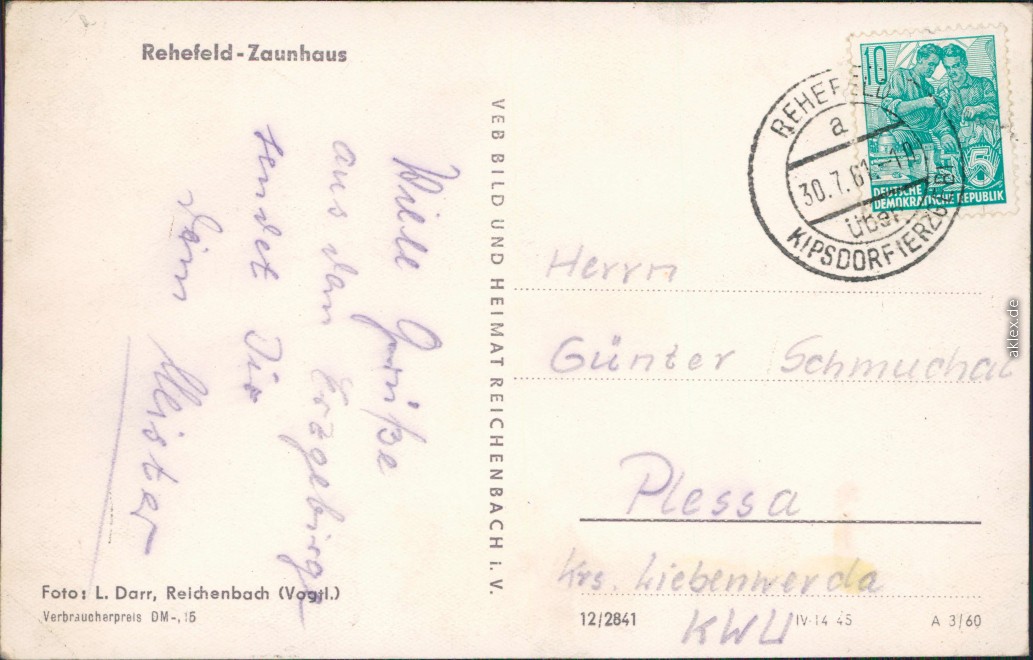 Rehefeld-Zaunhaus
Viele Grüße
aus dem Erzgebirge
sendet Dir
Dein Meister
Foto: L. Darr, Reichenbach (Vogtl.)
Verbraucherpreis DM -,15
VEB BILD UND HEIMAT REICHENBACH i. V.
10
5
DEUTSCHE
DEMOKRATISCHE REPUBLIK
REHEFELD
a
30.7.61
über
KIPSDORF (ERZGEB)
Herrn
Günter Schmuchal
Plessa
Krs. Liebenwerda
KWU
12/2841
IV-14-45
A 3/60
aklex.de